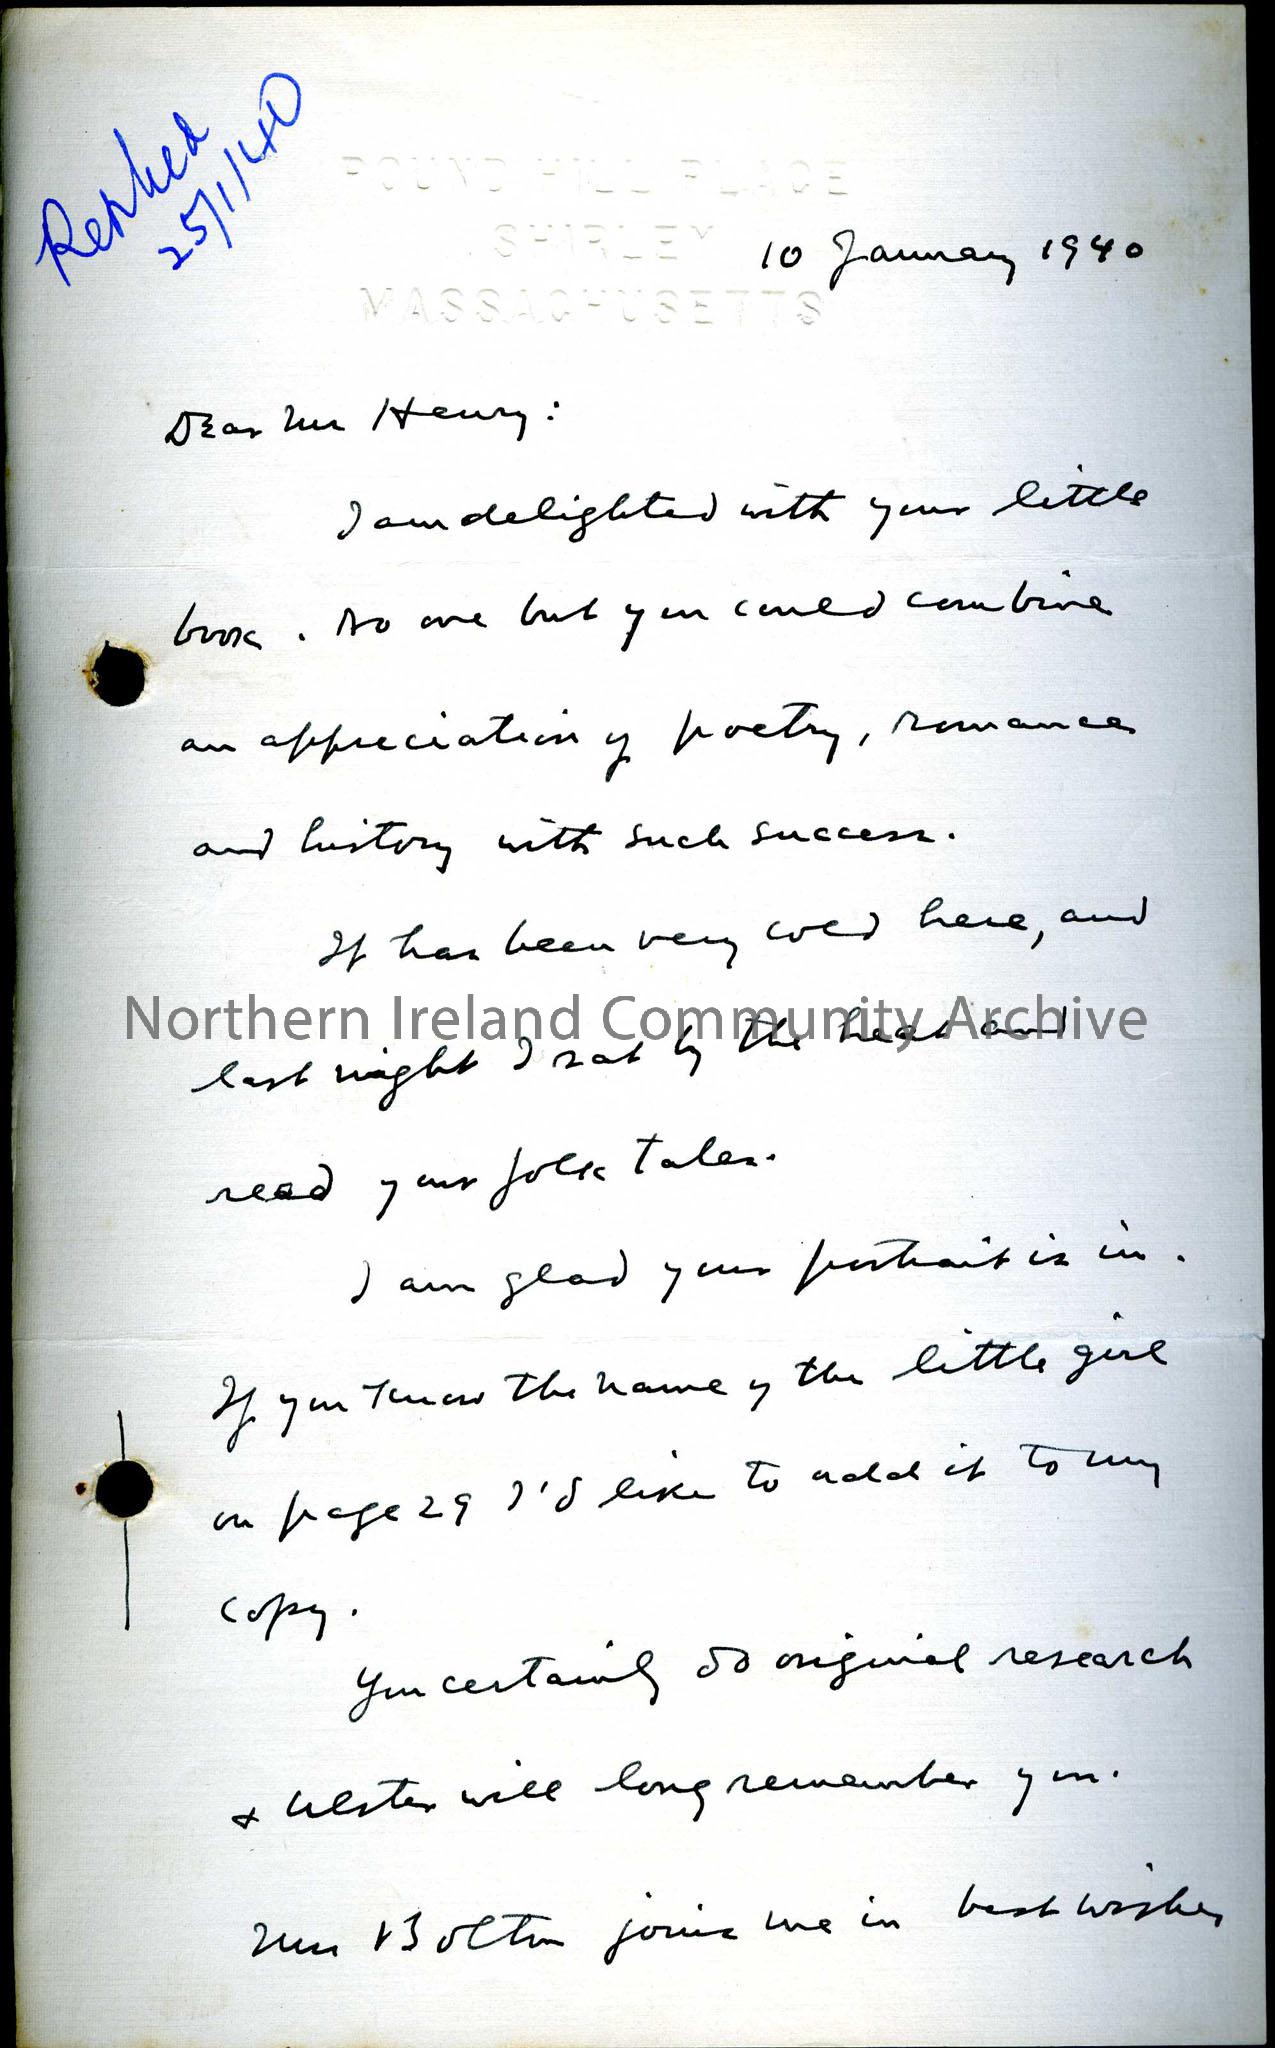 Replied
25/1/40
POUND HILL PLACE
SHIRLEY
MASSACHUSETTS
10 January 1940
Dear Mr Henry:
I am delighted with your little
book. No one but you could combine
an appreciation of poetry, romance
and history with such success.
It has been very cold here, and
Northern Ireland Community Archive
last night I sat by the heat and
read your folk tales.
I am glad your portrait is in.
If you know the name of the little girl
on page 29 I'd like to add it to my
copy.
You certainly do original research
& Ulster will long remember you.
Mrs Bolton joins me in best wishes